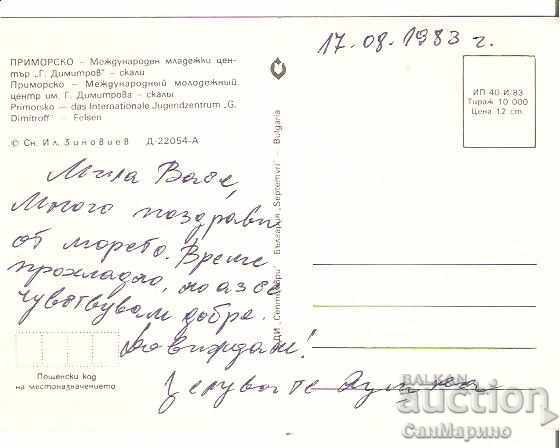 17.08.1983 г.
ПРИМОРСКО – Международен младежки цен-
тър „Г. Димитров" – скали
Приморско – Международный молодежный
центр им. Г. Димитрова – скалы
Primorsko – das Internationale Jugendzentrum „G.
Dimitroff" – Felsen
© Сн. Ил. Зиновиев Д-22054-А
ИП 40-И-83
Тираж 10 000
Цена 12 ст.
ДИ „Септември" България „Septemvri" – Bulgaria
Мила
Много поздрави
от морето. Времето
прохладно, но аз се
чувствувам добре.
Довиждане!
Целувам те
Пощенски код
на местоназначението
БАЛКАН
auction
СанМарино